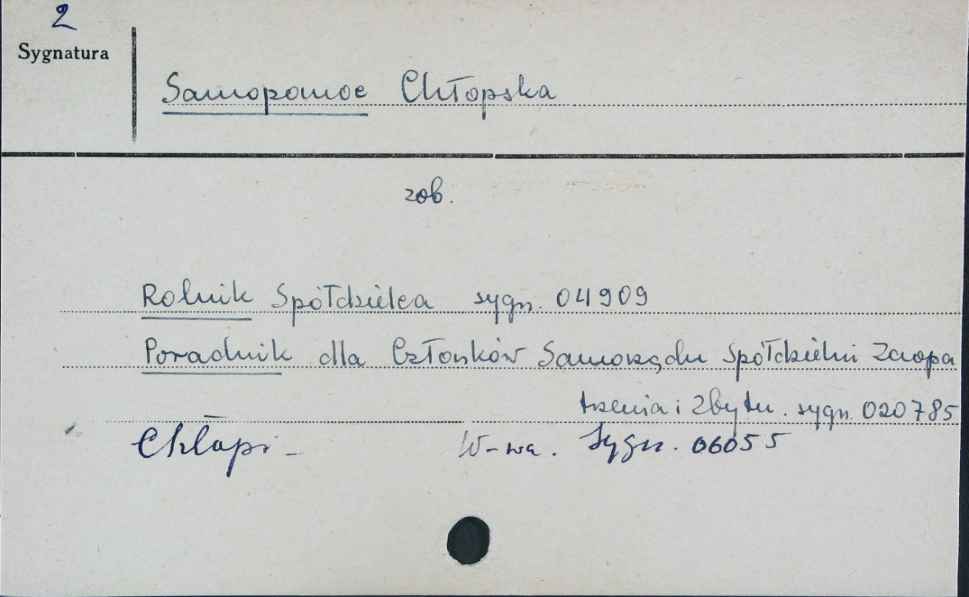 2
Sygnatura
Samopomoc Chłopska
zob.
Rolnik Spółdzielca sygn. 04909
Poradnik dla Członków Samorządu Spółdzielni Zaopa
trzenia i Zbytu. sygn. 020785
Chłopi - W-wa. Sygn. 06055